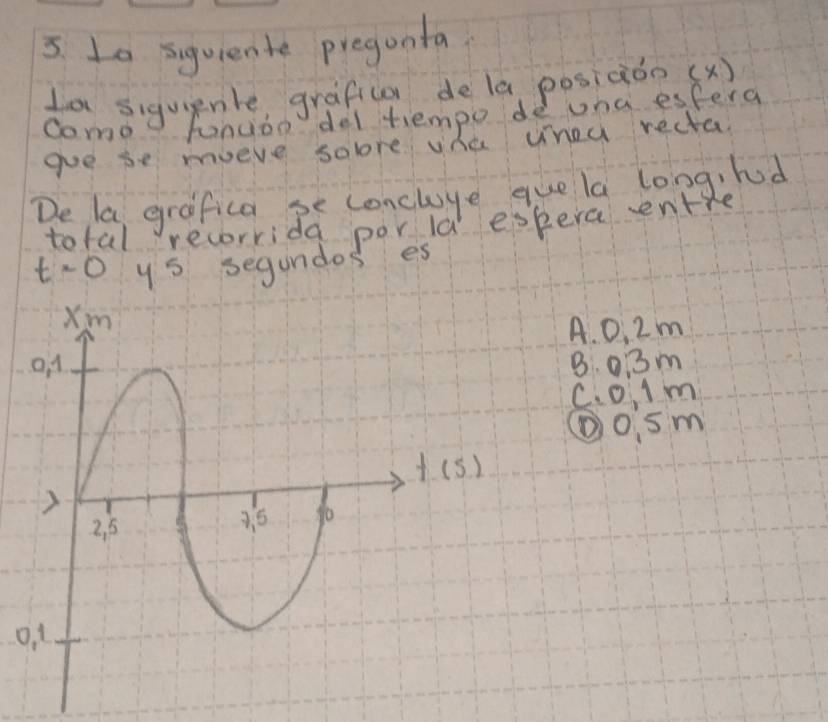 3. La siguiente pregunta.
La siguiente gráfica de la posición (x)
como función del tiempo de una esfera
que se mueve sobre una línea recta.
De la gráfica se concluye que la longitud
total recorrida por la esfera entre
t=0 y 5 segundos es
Xm
0,1
t(s)
2,5
7,5
10
0,1
A. 0,2m
B. 0,3m
C. 0,1m
D 0,5m